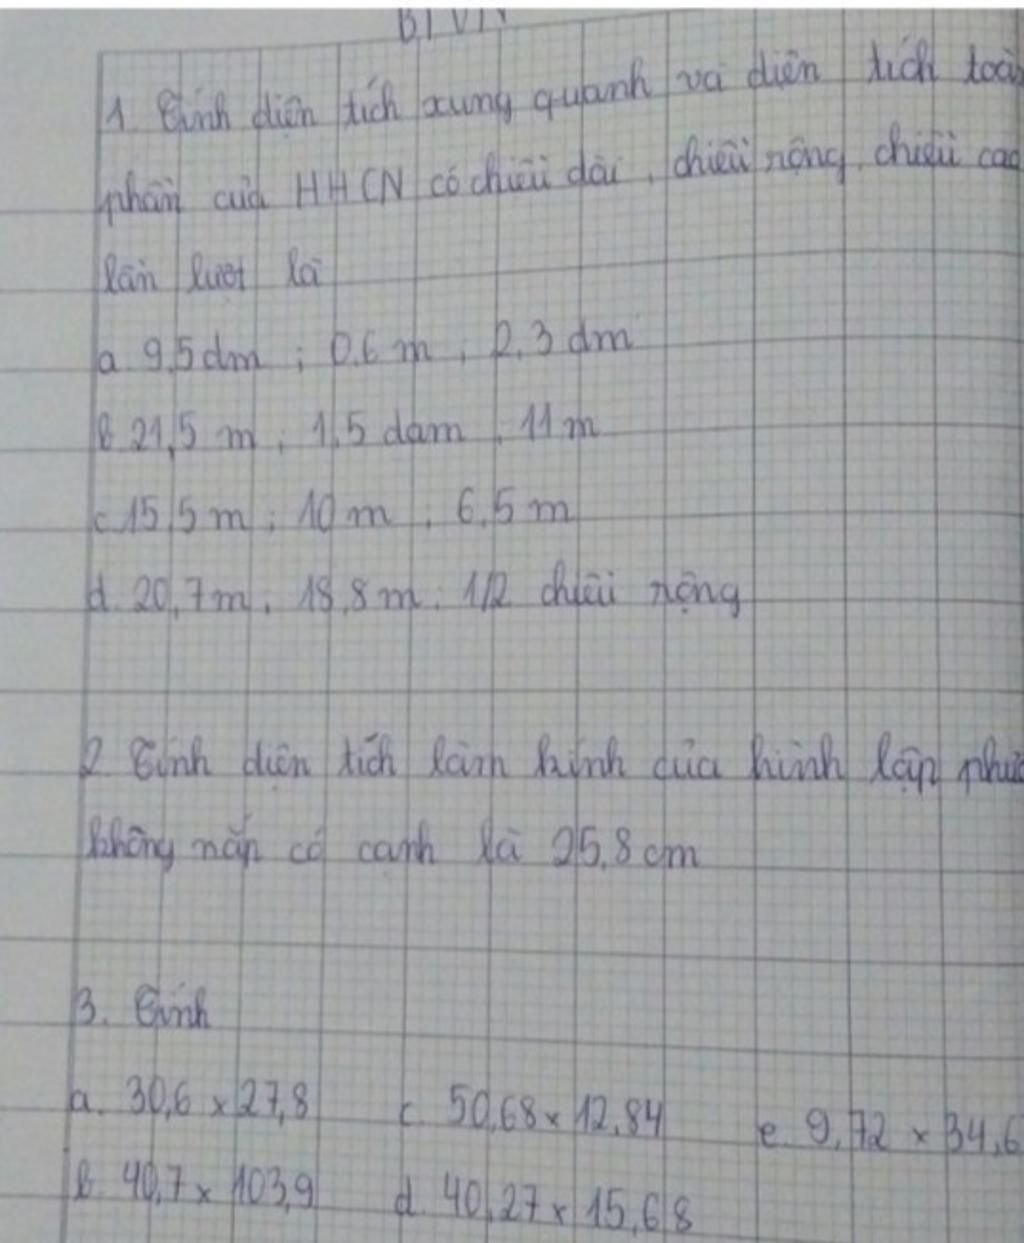 BTVN
1. Tính diện tích xung quanh và diện tích toàn
phần của HHCN có chiều dài, chiều rộng, chiều cao
lần lượt là
a. 9,5 dm ; 0,6 m , 2,3 dm
b. 21,5 m ; 1,5 dam , 11 m
c. 15,5 m ; 10 m , 6,5 m
d. 20,7 m , 18,8 m , 1/2 chiều rộng
2. Tính diện tích làm hình của hình lập phươ
không nắp có cạnh là 25,8 cm
3. Tính
a. 30,6 × 27,8 c. 50,68 × 12,84 e. 9,72 × 34,6
b. 40,7 × 103,9 d. 40,27 × 15,68